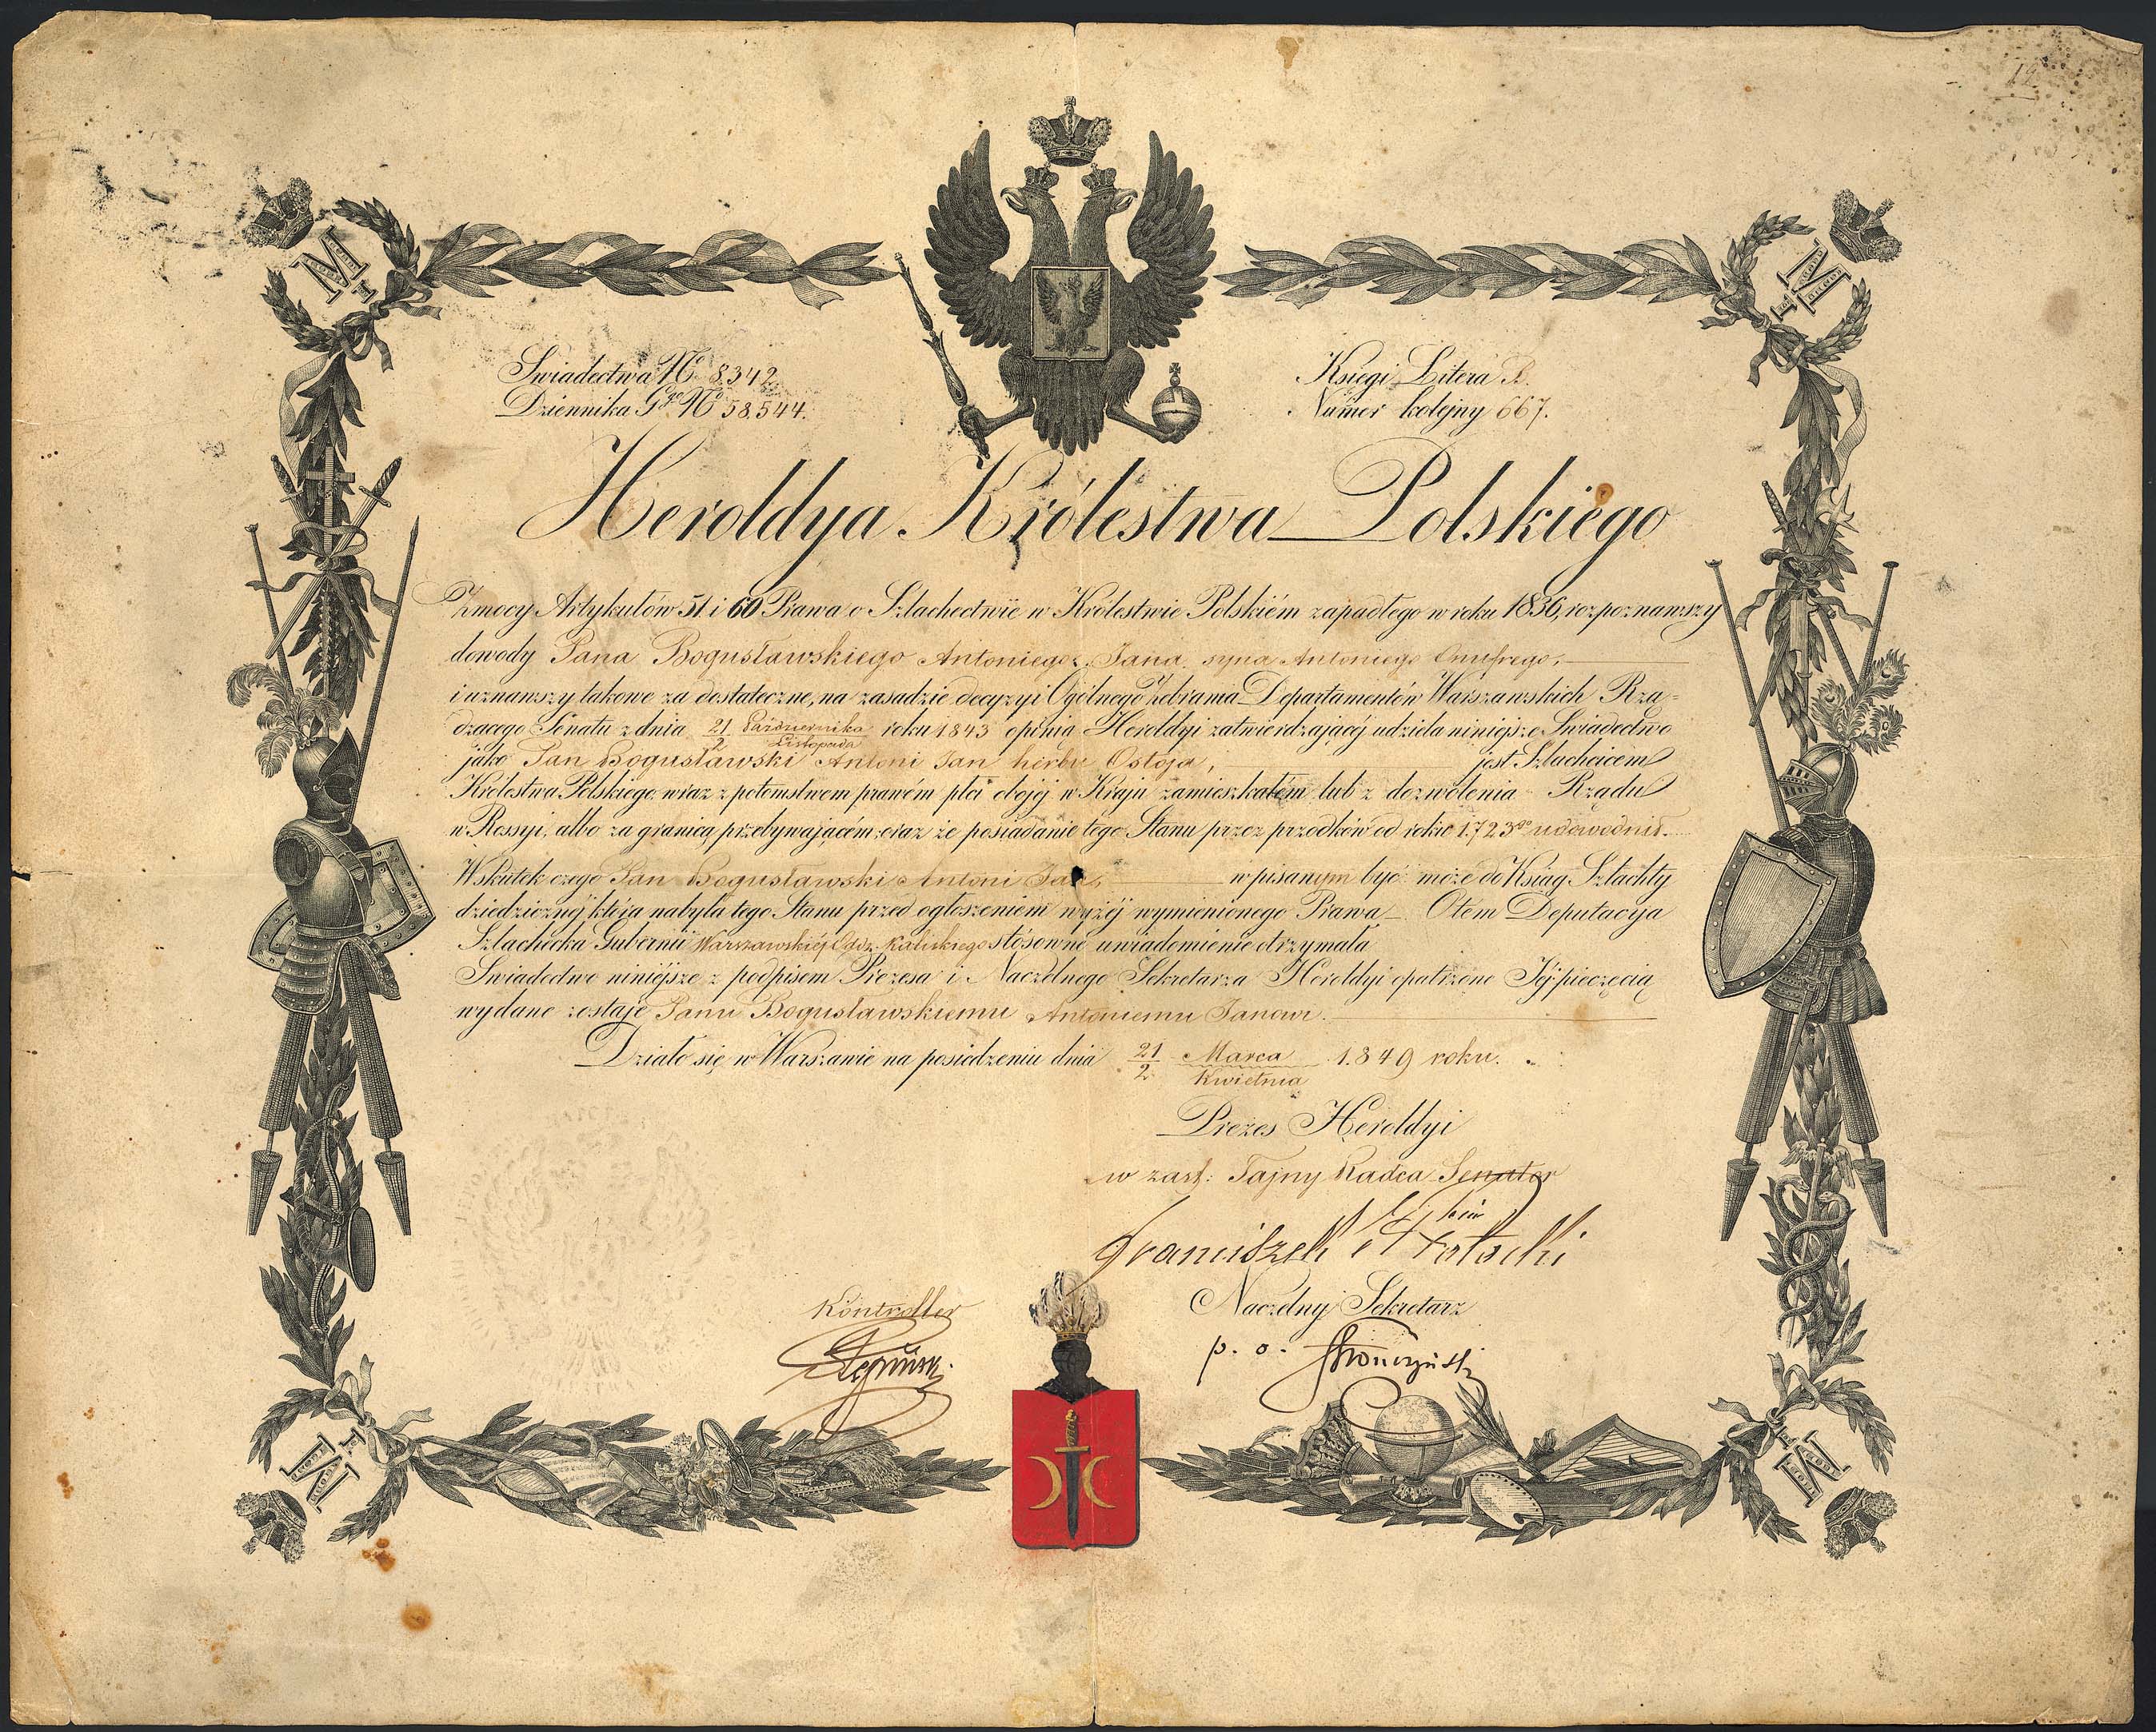 12
Swiadectwa Nº 8342.
Dziennika Gᵍᵒ Nº 58544.
Księgi Litera B.
Numer kolejny 667.
Heroldya Królestwa Polskiego
Z mocy Artykułów 51 i 60 Prawa o Szlachectwie w Królestwie Polskiém zapadłego w roku 1836, rozpoznawszy
dowody Pana Bogusławskiego Antoniego, Jana, syna Antoniego Onufrego,
i uznawszy takowe za dostateczne, na zasadzie decyzyi Ogólnego Zebrania Departamentów Warszawskich Rzą-
dzącego Senatu z dnia 21/2 Października/Listopada roku 1843 opinią Heroldyi zatwierdzającéj udziela niniejsze Swiadectwo
jako Pan Bogusławski Antoni Jan herbu Ostoja, jest Szlachcicem
Królestwa Polskiego wraz z potomstwem prawém płci obojéj w Kraju zamieszkałém lub z dozwolenia Rządu
w Rossyi, albo za granicą przebywającém; oraz że posiadanie tego Stanu przez przodków od roku 1723ᵍᵒ udowodnił.
W skutek czego Pan Bogusławski Antoni Jan, wpisanym być może do Ksiąg Szlachty
dziedzicznéj która nabyła tego Stanu przed ogłoszeniem wyżéj wymienionego Prawa. O tém Deputacya
Szlachecka Gubernii Warszawskiéj Odz. Kaliskiego stósowne uwiadomienie otrzymała
Swiadectwo niniejsze z podpisem Prezesa i Naczelnego Sekretarza Heroldyi opatrzone Jéj pieczęcią
wydane zostaje Panu Bogusławskiemu Antoniemu Janowi.
Działo się w Warszawie na posiedzeniu dnia 21/2 Marca/Kwietnia 1849 roku.
Prezes Heroldyi
w zast: Tajny Radca Senator
Franciszek Potocki
Naczelny Sekretarz
p. o. Stronczyński
Kontroller